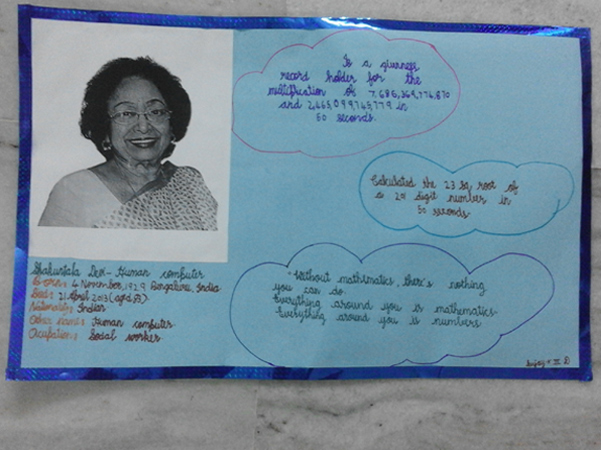 Is a guiness
record holder for the
multiplication of 7,686,369,774,870
and 2,465,099,745,779 in
50 seconds.
Calculated the 23 sq root of
a 201 digit number in
50 seconds
"Without mathematics, there's nothing
you can do.
Everything around you is mathematics.
Everything around you is numbers
Shakuntala Devi - Human computer
Born: 4 November, 1929 Bengaluru, India
Died: 21 April 2013 (aged 83)
Nationality: Indian
Other name: Human computer
Occupation: Social worker